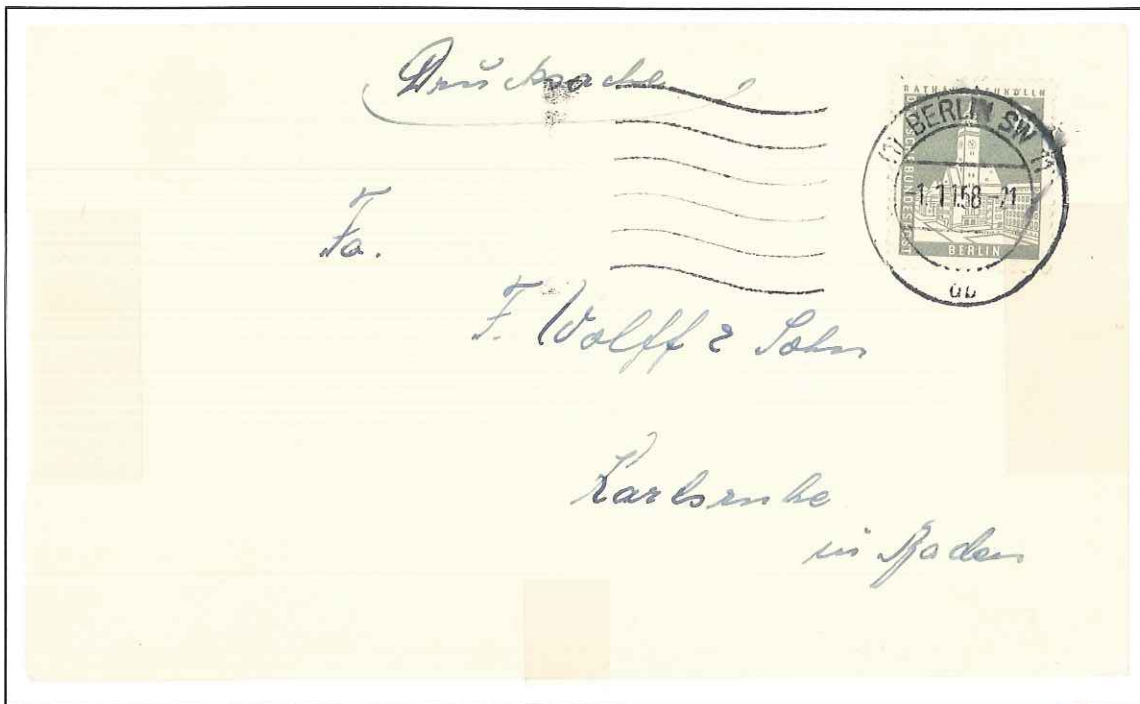 Drucksache
RATHAUS NEUKÖLLN
DEUTSCHE BUNDESPOST
BERLIN
(1) BERLIN SW 11
-1.11.58-21
Fa.
F. Wolff & Sohn
Karlsruhe
in Baden